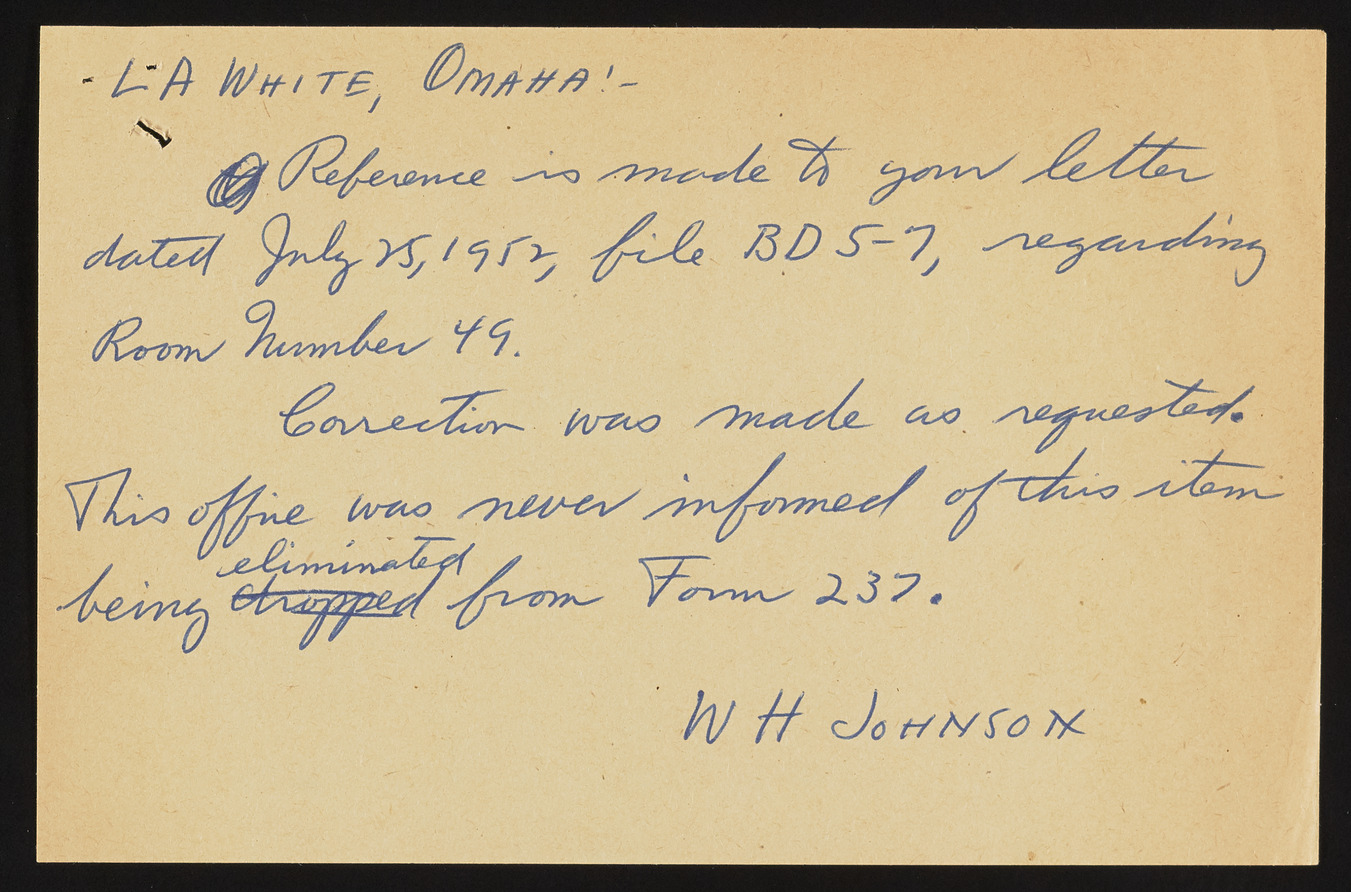 L A WHITE, OMAHA!-
Reference is made to your letter
dated July 25, 1952, file BD 5-7, regarding
Room Number 49.
Correction was made as requested.
This office was never informed of this item
eliminated
being dropped from Form 237.
W H JOHNSON